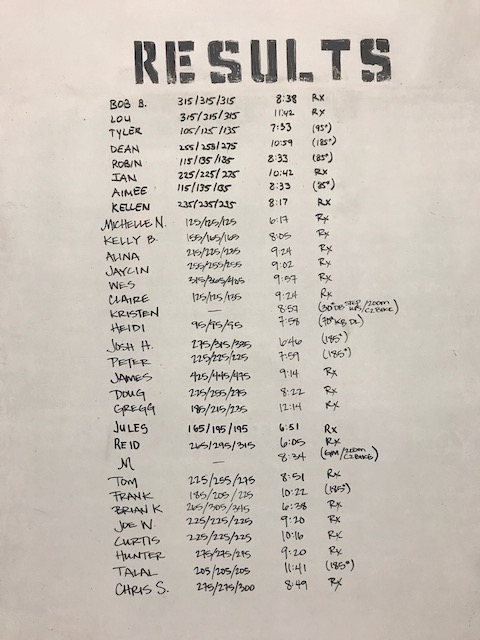 RESULTS
BOB B. 315/315/315 8:38 RX
LOU 315/315/315 11:42 RX
TYLER 105/125/135 7:33 (95#)
DEAN 255/255/275 10:59 (185#)
ROBIN 115/135/135 8:33 (85#)
IAN 225/225/275 10:42 RX
AIMEE 115/135/135 8:33 (85#)
KELLEN 235/235/235 8:17 RX
MICHELLE N. 125/125/125 6:17 RX
KELLY B. 155/165/165 8:05 RX
ALINA 215/225/225 9:24 RX
JAYLIN 255/255/255 9:02 RX
WES 315/365/405 9:57 RX
CLAIRE 125/125/135 9:24 RX
KRISTEN — 8:57 (30# DB STEP UPS/200M C2 BIKE)
HEIDI 95/95/95 7:58 (70# KB DL)
JOSH H. 275/315/335 6:46 (185#)
PETER 225/225/225 7:59 (185#)
JAMES 425/445/475 9:14 RX
DOUG 225/255/275 8:22 RX
GREGG 185/215/235 12:14 RX
JULES 165/195/195 6:51 RX
REID 265/295/315 6:05 RX
M — 8:34 (GM/200M C2 BIKE)
TOM 225/255/275 8:51 RX
FRANK 185/205/225 10:22 (185#)
BRIAN K 265/305/345 6:38 RX
JOE W. 225/225/225 9:20 RX
CURTIS 225/225/225 10:16 RX
HUNTER 275/275/275 9:20 RX
TALAL 205/205/205 11:41 (185#)
CHRIS S. 275/275/300 8:49 RX